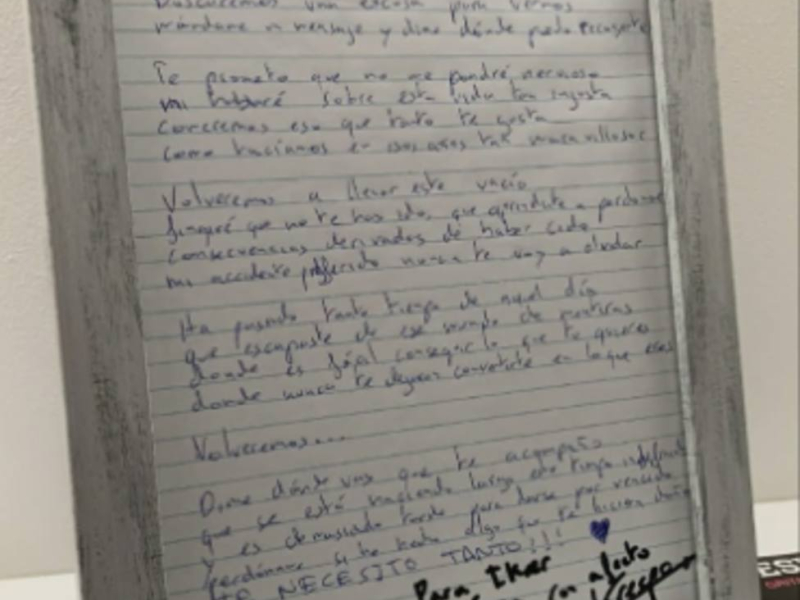 Buscaremos una excusa para vernos
mándame un mensaje y dime dónde puedo recogerte
Te prometo que no me pondré nervioso
ni hablaré sobre esta vida tan injusta
correremos eso que tanto te gusta
como hacíamos en esos años tan maravillosos
Volveremos a llenar este vacío
fingiré que no te has ido, que aprendiste a perdonar
consecuencias derivadas de haber sido
mi accidente preferido nunca te voy a olvidar
Ha pasado tanto tiempo de aquel día
que escapaste de ese mundo de mentiras
donde es fácil conseguir lo que te quieres
donde nunca te dejaron convertirte en lo que eres
Volveremos...
Dime dónde vas que te acompaño
que se está haciendo largo este tiempo indefinido
y es demasiado tarde para darse por vencido
perdóname si he hecho algo que te hiciera daño
TE NECESITO TANTO!!!
Para Iker
con afecto
ES